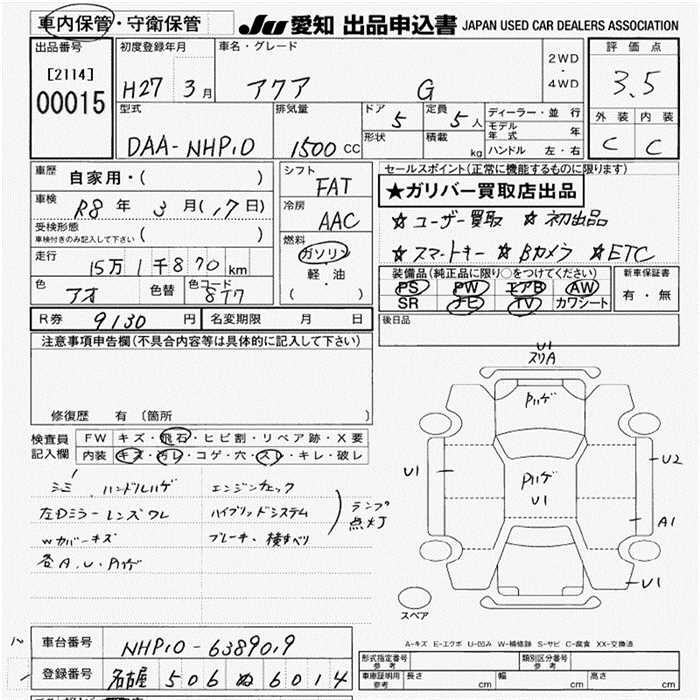 車内保管・守衛保管 JU 愛知 出品申込書 JAPAN USED CAR DEALERS ASSOCIATION
出品番号 初度登録年月 車名・グレード 評価点
[2114] 2WD
00015 H27 3月 アクア G ・ 3.5
4WD
型式 排気量 ドア 5 定員 5人 ディーラー・並行 外装 内装
モデル年式 年
DAA-NHP10 1500 CC 形状 積載 kg ハンドル 左・右 C C
車歴 自家用・( ) シフト FAT セールスポイント(正常に機能するものに限ります)
★ガリバー買取店出品
車検 R8年 3月(17日) 冷房 AAC ☆ユーザー買取 ☆初出品
受検形態
車検付きのみ記入して下さい ( ) 燃料 ☆スマートキー ☆Bカメラ ☆ETC
走行 15万1千870km ガソリン 装備品(純正品に限り○をつけてください) 新車保証書
軽・油 PS PW エアB AW 有・無
色 アオ 色替 色コード 8T7 ( ) SR ナビ TV カワシート
R券 9130円 名変期限 月 日 後日品
注意事項申告欄(不具合内容等は具体的に記入して下さい)
修復歴 有(箇所 )
検査員記入欄 FW キズ・飛石・ヒビ割・リペア跡・X要
内装 キズ・汚レ・コゲ・穴・スレ・キレ・破レ
シミ ハンドルハゲ エンジンチェック
左Dミラーレンズワレ ハイブリッドシステム ランプ点灯
Wカバーキズ ブレーキ、横すべり
各A.U.Pハゲ
U1
スリA
Pハゲ
U1 Pハゲ U2
U1
A1
U1
スペア
A-キズ E-エクボ U-凹み W-補修跡 S-サビ C-腐食 XX-交換済
車台番号 NHP10-6389019
登録番号 名古屋 506 ぬ 6014
形式指定番号 参考 類別区分番号 参考
車庫証明用 参考 長さ cm 幅 cm 高さ cm